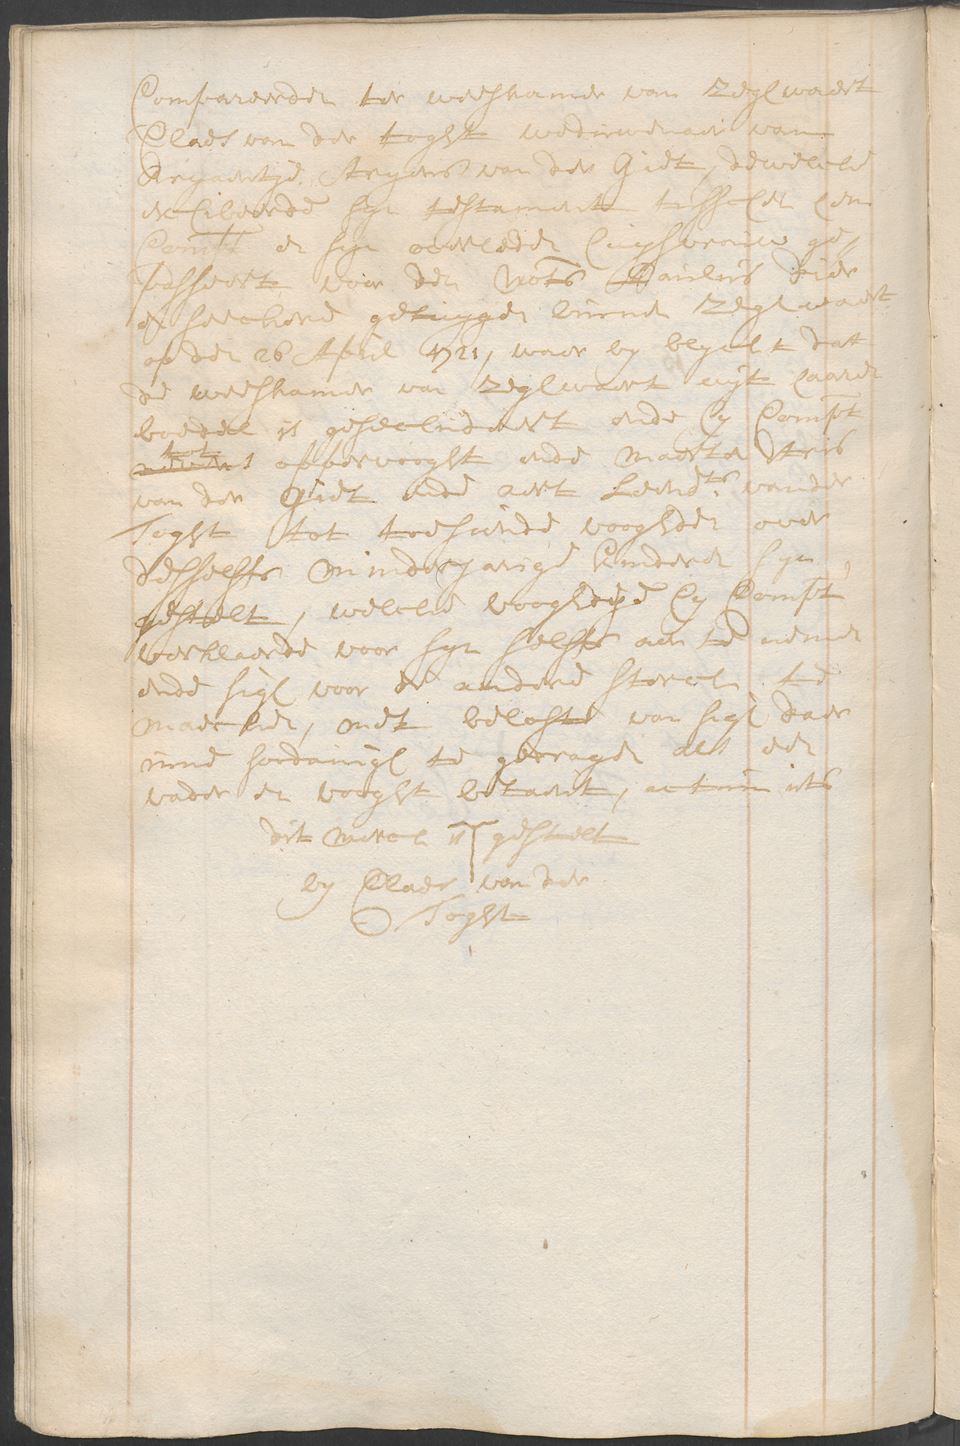 Compareerden ter weeskamer van Zegl waert
Claes van der toght weduwenaer van
Aryaentje Aryens van der Giet, dewelcke
exhibeerde syn testament tusschen hem
Compt en syn overleden huysvrouw ge,
passeert voor den Nots Paulus
en seeckere getuygen binnen Zegl waert
op den 26 April 1721, waer by blyckt dat
de weeskamer van Zeglwaert uyt haeren
boedel is gesecludeert ende hy Compt
tot oppervooght ende Maerten
van der Giet ende aert Leendts vander
Toght tot toesiende vooghden over
desselfs minderjarige kinderen syn
gestelt, welcke vooghdye hy Compt
verklaerde voor syn selfs aen te nemen
ende sigh voor de andere sterck te
maecken, met belofte van sigh daer
inne sordanigh te gedragen als een
vader en vooght betaemt, actum uts
dit merck is gestelt
by Claes van der
Toght